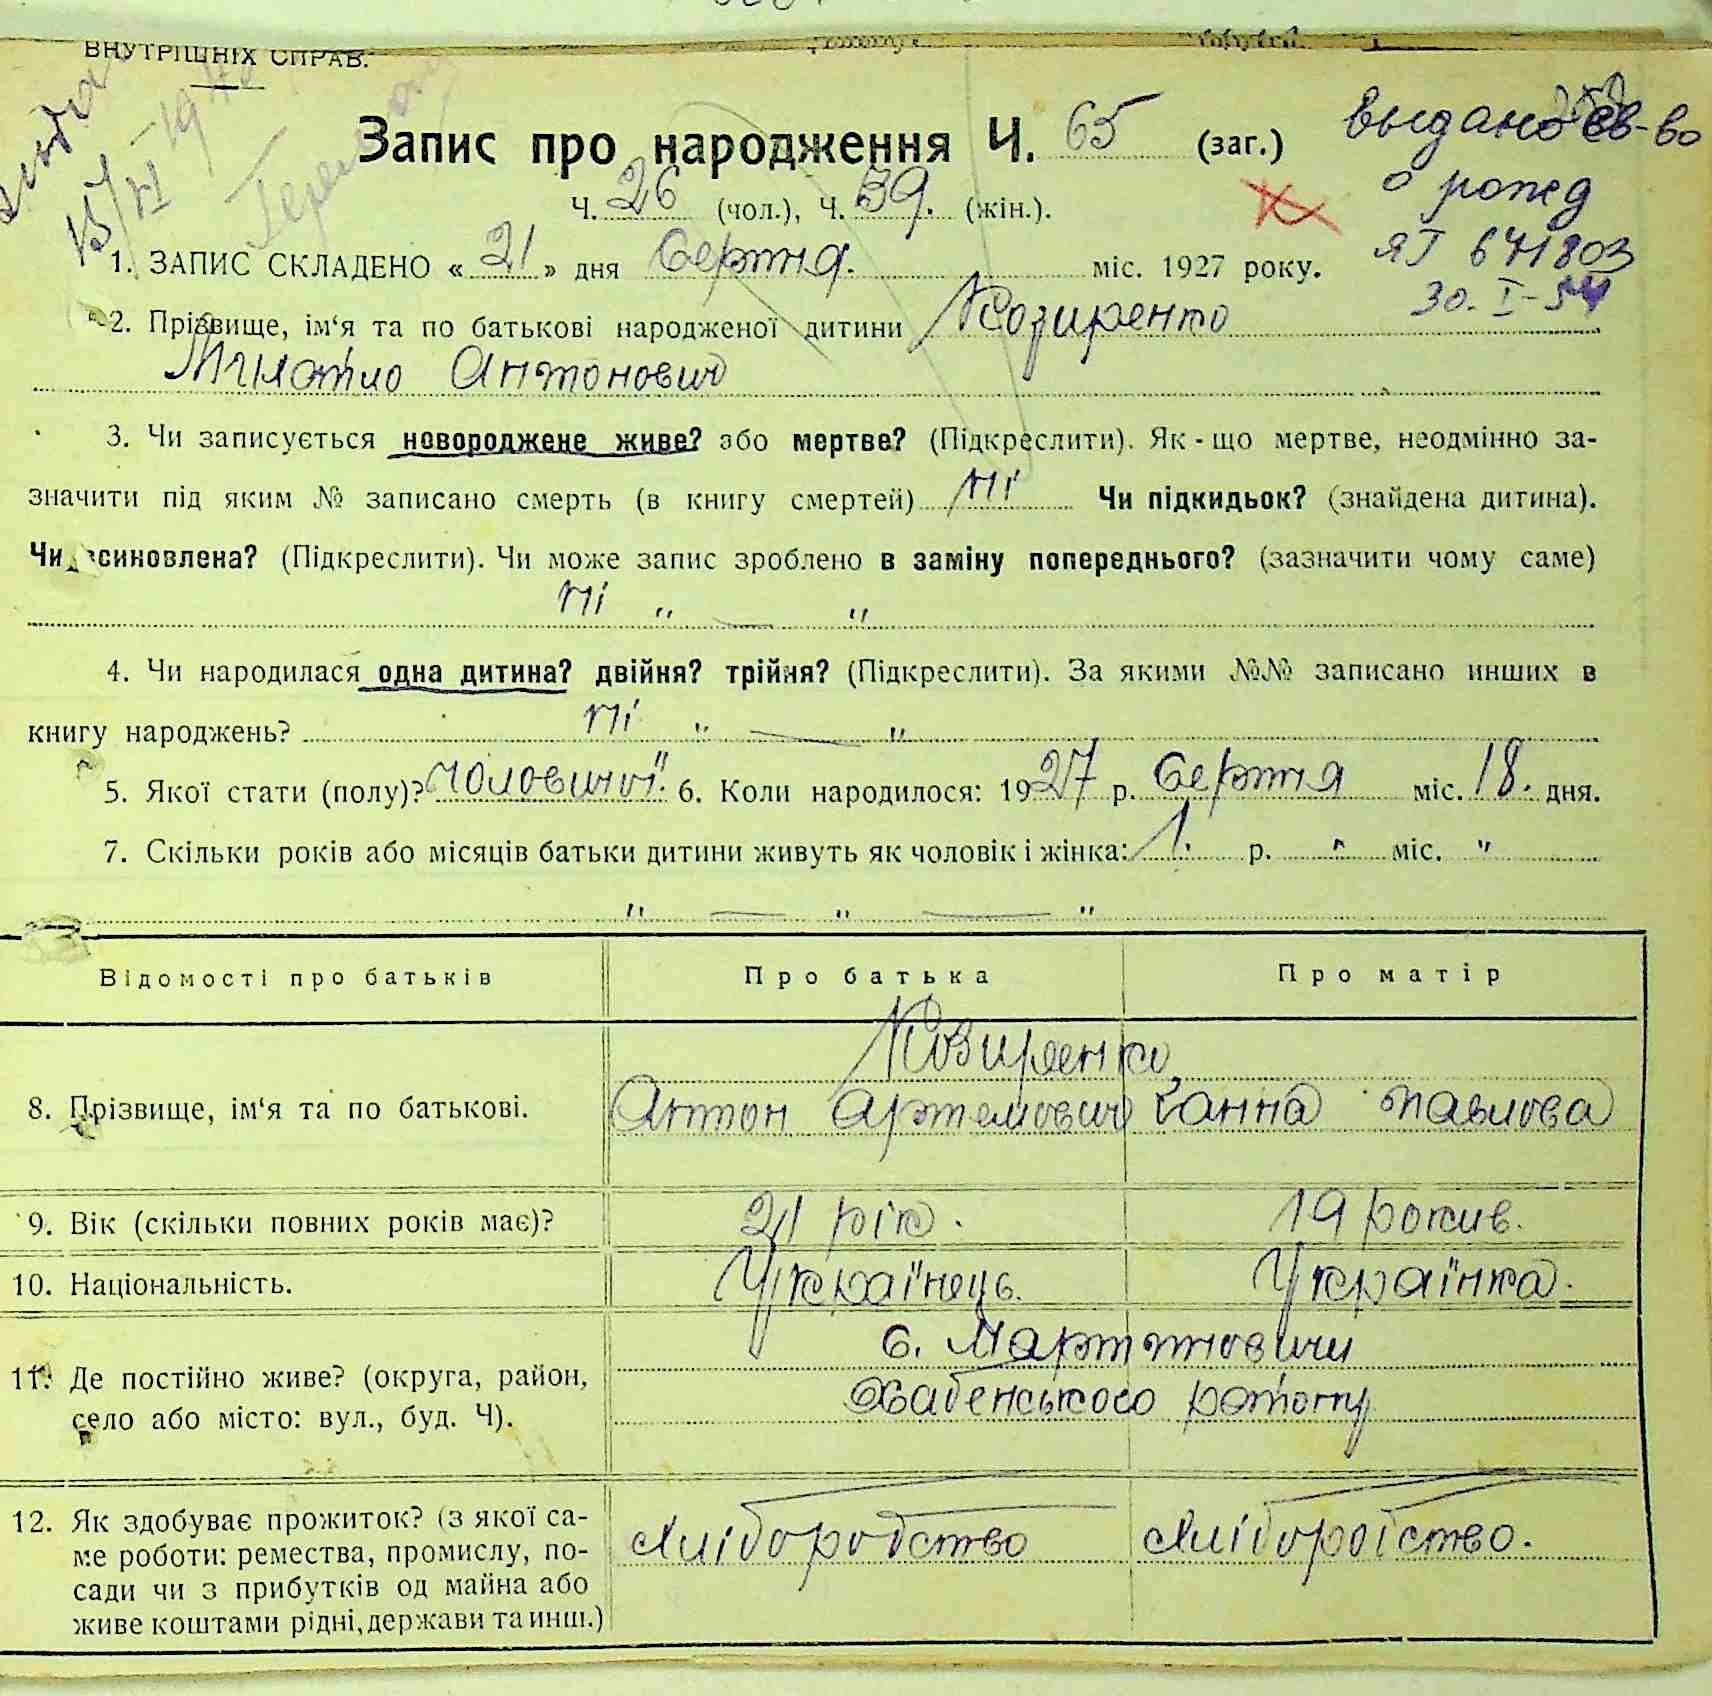 ВНУТРІШНІХ СПРАВ.
Запис про народження Ч. 65 (заг.)
Ч. 26 (чол.), Ч. 39. (жін.).
выдано св-во
о рожд
ЯТ 671803
30. I-54
1. ЗАПИС СКЛАДЕНО « 21 » дня Серпня. міс. 1927 року.
2. Прізвище, ім‘я та по батькові народженої дитини Козиренко
Михайло Антонович
3. Чи записується новороджене живе? або мертве? (Підкреслити). Як-що мертве, неодмінно за-
значити під яким № записано смерть (в книгу смертей) ні Чи підкидьок? (знайдена дитина).
Чи всиновлена? (Підкреслити). Чи може запис зроблено в заміну попереднього? (зазначити чому саме)
ні „ — "
4. Чи народилася одна дитина? двійня? трійня? (Підкреслити). За якими №№ записано инших в
книгу народжень? ні " — "
5. Якої стати (полу)? чоловичої. 6. Коли народилося: 1927 р. Серпня міс. 18. дня.
7. Скільки років або місяців батьки дитини живуть як чоловік і жінка: 1. р. " міс. "
" — " — "
Відомості про батьків Про батька Про матір
Козиренко
8. Прізвище, ім‘я та по батькові. Антон Артемович Ганна Павлова
9. Вік (скільки повних років має)? 21 рік. 19 років.
10. Національність. Українець. Українка.
с. Мартиновичи
11. Де постійно живе? (округа, район,
Хабенського району
село або місто: вул., буд. Ч).
12. Як здобуває прожиток? (з якої са-
ме роботи: ремества, промислу, по- Хліборобство Хліборобство.
сади чи з прибутків од майна або
живе коштами рідні, держави та инш.)